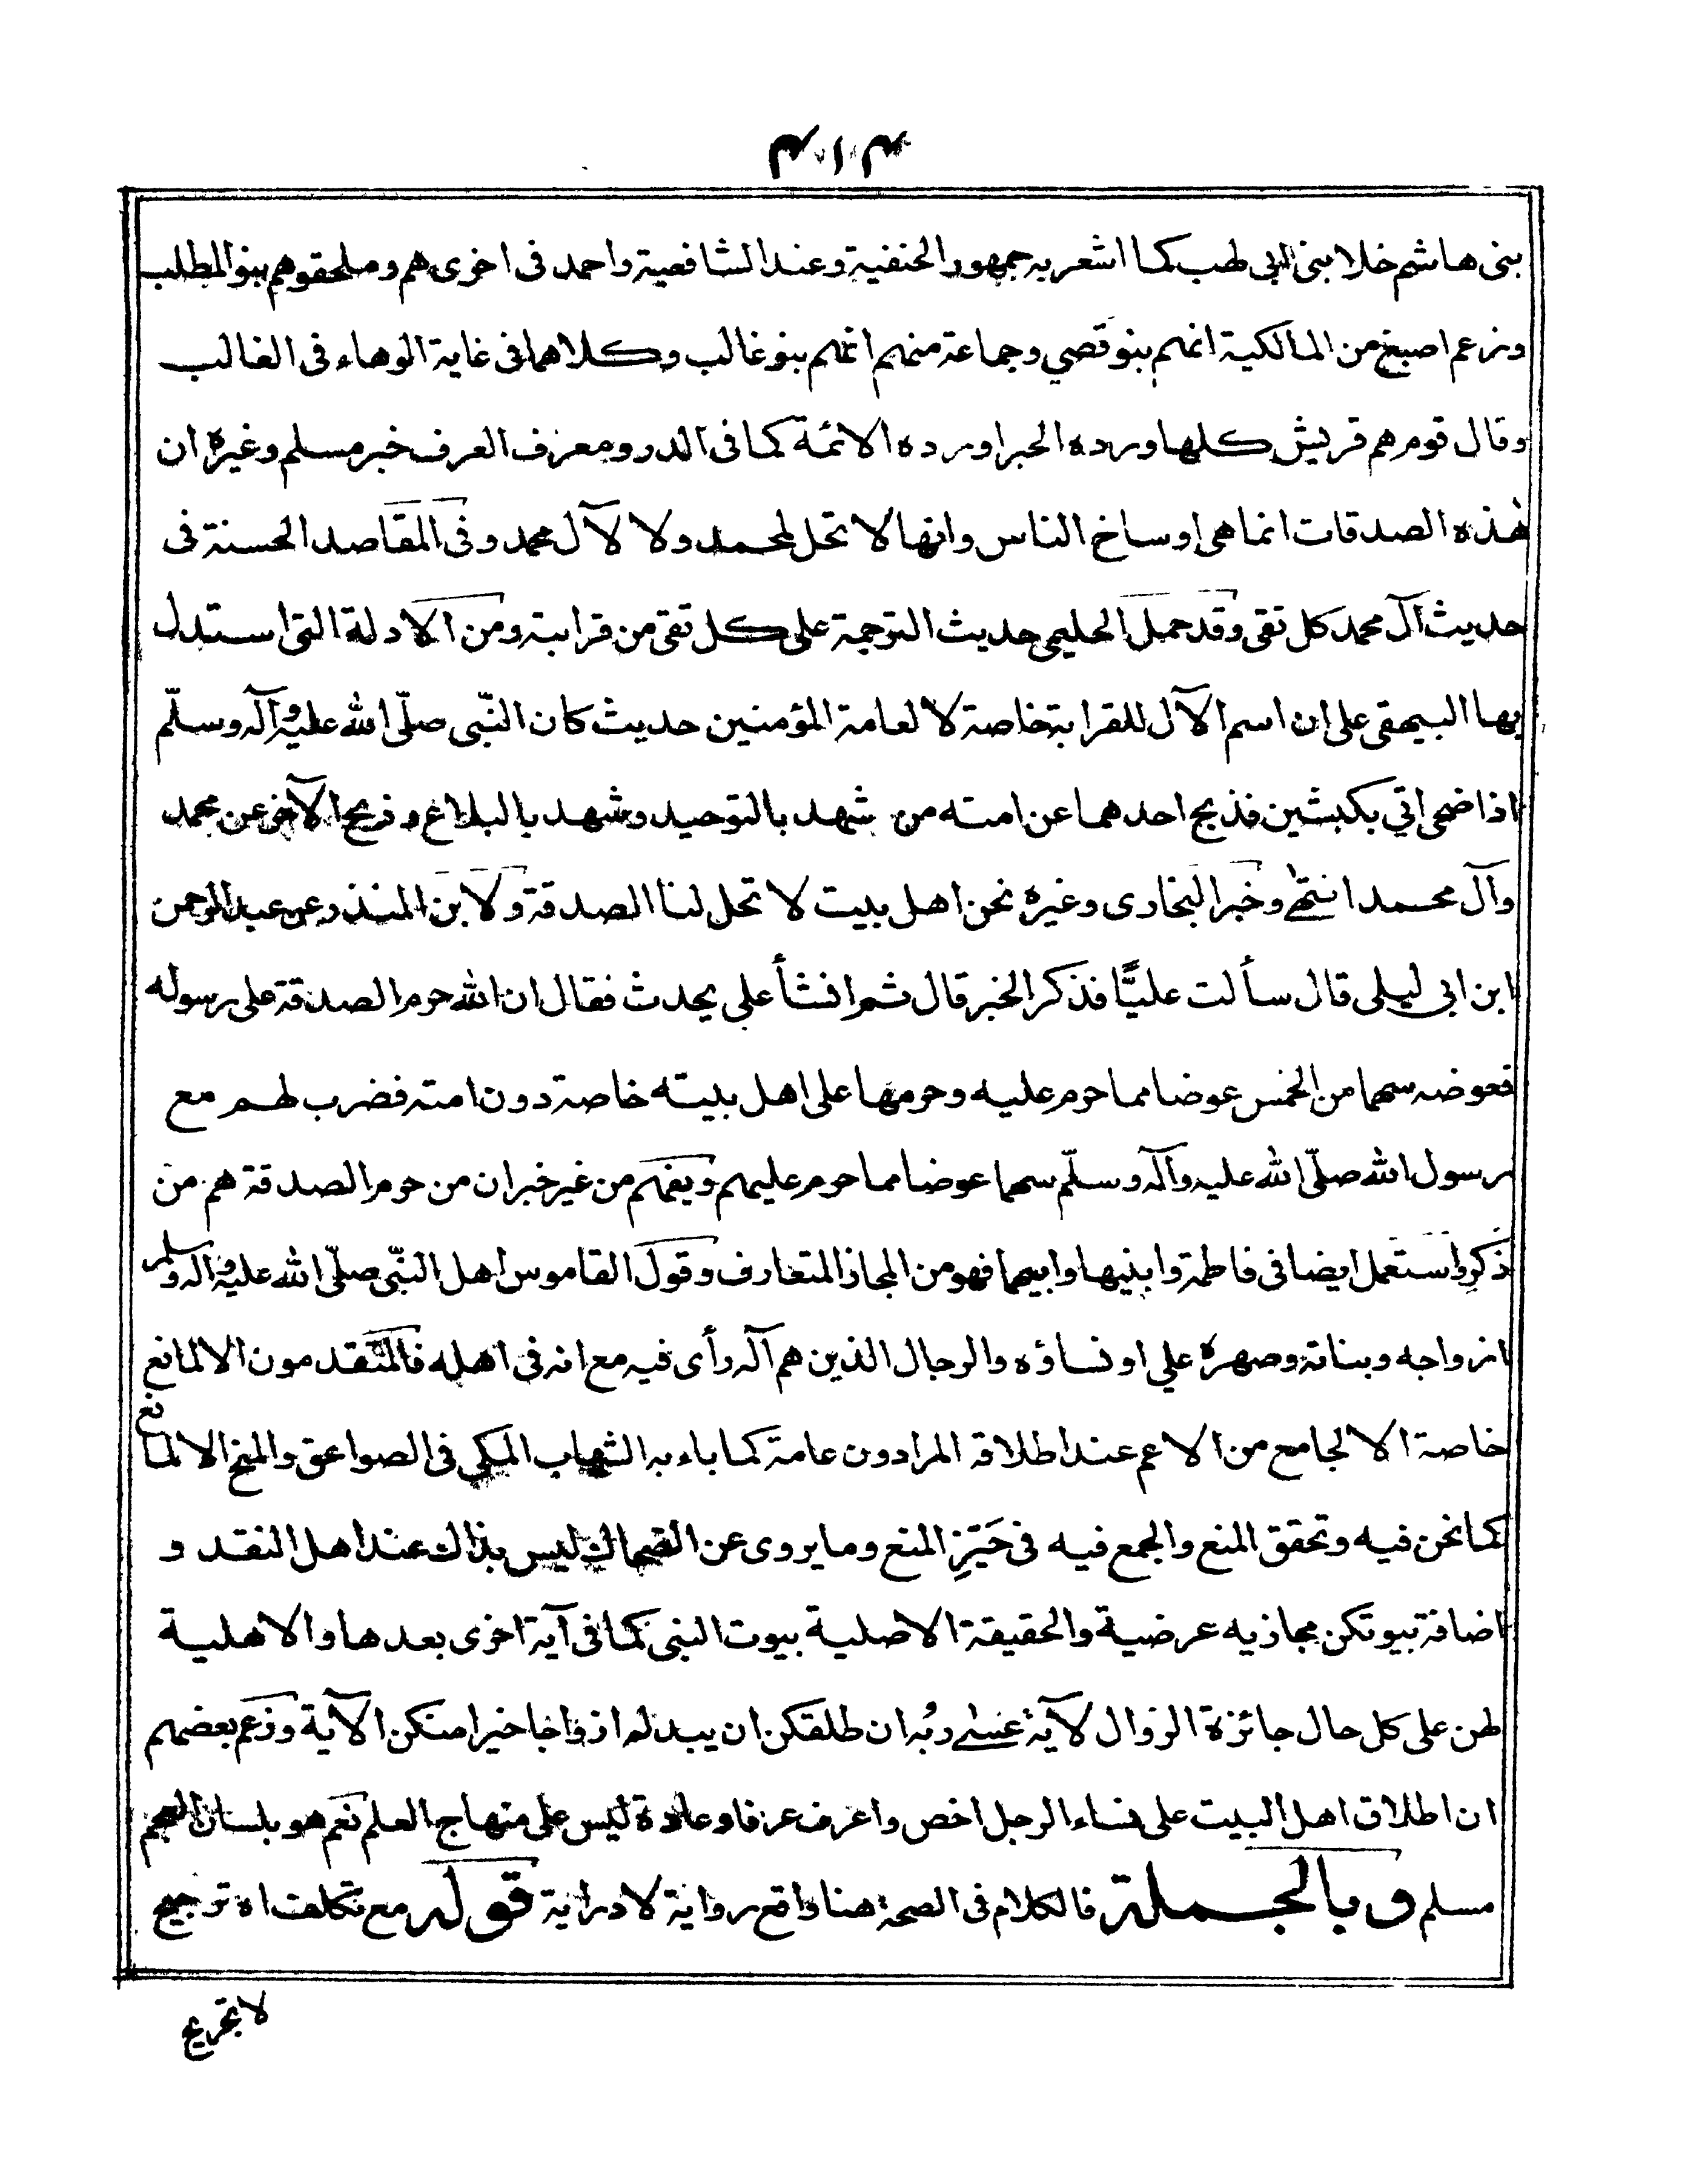 ٤١٠٤
بنى هاشم خلا بنى ابى لهب كما اشعر به جمهور الحنفية وعند الشافعية واحمد فى اخرى هم وملحقوهم بنو المطلب
وزعم اصبغ من المالكية انهم بنو قصي وجماعة منهم انهم بنو غالب وكلاهما فى غاية الوهاء فى الغالب
وقال قوم هم قريش كلها ورده الحبر اورده الائمة كما فى الدر ومعرف العرف خبر مسلم وغيره ان
هذه الصدقات انما هى اوساخ الناس وانها لا تحل لمحمد ولا لآل محمد وفى المقاصد الحسنة فى
حديث آل محمد كل تقى وقد حمل الحليمى حديث الترجمة على كل تقى من قرابته ومن الادلة التى استدل
بها البيهقى على ان اسم الآل للقرابة خاصة لا لعامة المؤمنين حديث كان النّبى صلّى الله عليه وآله وسلّم
اذا ضحى اتي بكبشين فذبح احدهما عن امته من شهد بالتوحيد وشهد بالبلاغ وذبح الآخر عن محمد
وآل محمد انتهى وخبر البخارى وغيره نحن اهل بيت لا تحل لنا الصدقة ولابن المنذر عن عبد الرحمن
ابن ابى ليلى قال سألت عليًّا فذكر الخبر قال ثم انشأ علي يحدث فقال ان الله حرم الصدقة على رسوله
فعوضه سهما من الخمس عوضا مما حرم عليه وحرمها على اهل بيته خاصة دون امته فضرب لهم مع
رسول الله صلّى الله عليه وآله وسلّم سهما عوضا مما حرم عليهم ويفهم من غير خبر ان من حرم الصدقة هم من
ذكر واستعمل ايضا فى فاطمة وابنيها وابيهما فهو من المجاز المتعارف وقول القاموس اهل النّبى صلّى الله عليه وآله وسلم
ازواجه وبناته وصهره علي او نساؤه والرجال الذين هم آله رأى فيه مع انه فى اهله فالمتقدمون الا لمانع
خاصة الا لجامع من الاعم عند اطلاقه المراد دون عامة كما باء به الشهاب المكى فى الصواعق والمنح الا لمانع
كما نحن فيه وتحقق المنع والجمع فيه فى حَيّزِ المنع وما يروى عن الضحاك ليس بذاك عند اهل النقد و
اضافة بيوتكن مجازيه عرضية والحقيقة الاصلية بيوت النبى كما فى آية اخرى بعدها والاهلية
لهن على كل حال جائزة الزوال لآية عسى ربُه ان طلقكن ان يبدله ازواجا خيرا منكن الآية وزعم بعضهم
ان اطلاق اهل البيت على نساء الرجل اخص واعرف عرفا وعادة ليس على منهاج العلم نعم هو بلسان العجم
مسلم وبالجملة فالكلام فى الصحة هنا واقع رواية لا دراية قوله مع تكلف اه ترجيح
لا تخريج